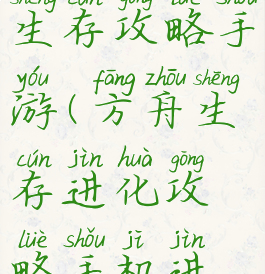 shēng cún gōng lüè shǒu
生存攻略手
yóu fāng zhōu shēng
游(方舟生
cún jìn huà gōng
存进化攻
lüè shǒu jī jìn
略手机进